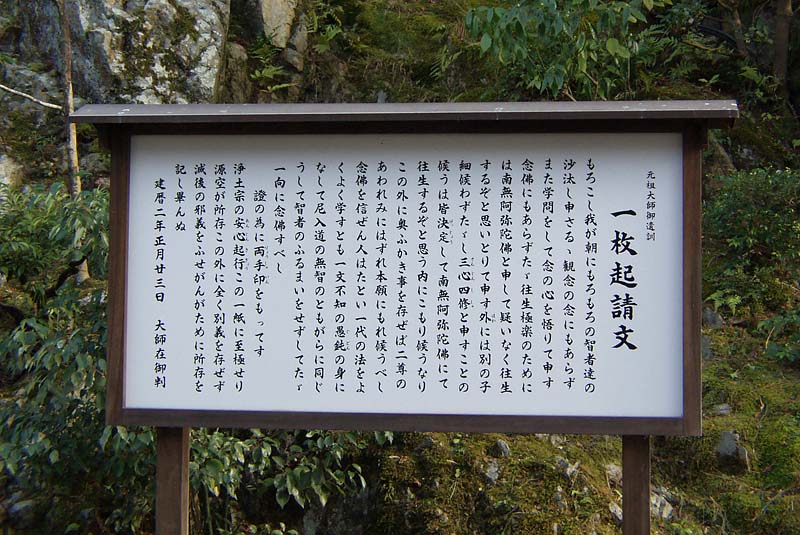 元祖大師御遺訓
一枚起請文
もろこし我が朝にもろもろの智者達の
沙汰し申さるゝ観念の念にもあらず
また学問をして念の心を悟りて申す
念佛にもあらずたゞ往生極楽のために
は南無阿弥陀佛と申して疑いなく往生
するぞと思いとりて申す外には別の子
細候わずたゞし三心四修と申すことの
候うは皆決定して南無阿弥陀佛にて
往生するぞと思う内にこもり候うなり
この外に奥ふかき事を存ぜば二尊の
あわれみにはずれ本願にもれ候うべし
念佛を信ぜん人はたとい一代の法をよ
くよく学すとも一文不知の愚鈍の身に
なして尼入道の無智のともがらに同じ
うして智者のふるまいをせずしてたゞ
一向に念佛すべし
證の為に両手印をもってす
浄土宗の安心起行この一紙に至極せり
源空が所存この外に全く別義を存ぜず
滅後の邪義をふせがんがために所存を
記し畢んぬ
建暦二年正月廿三日 大師在御判